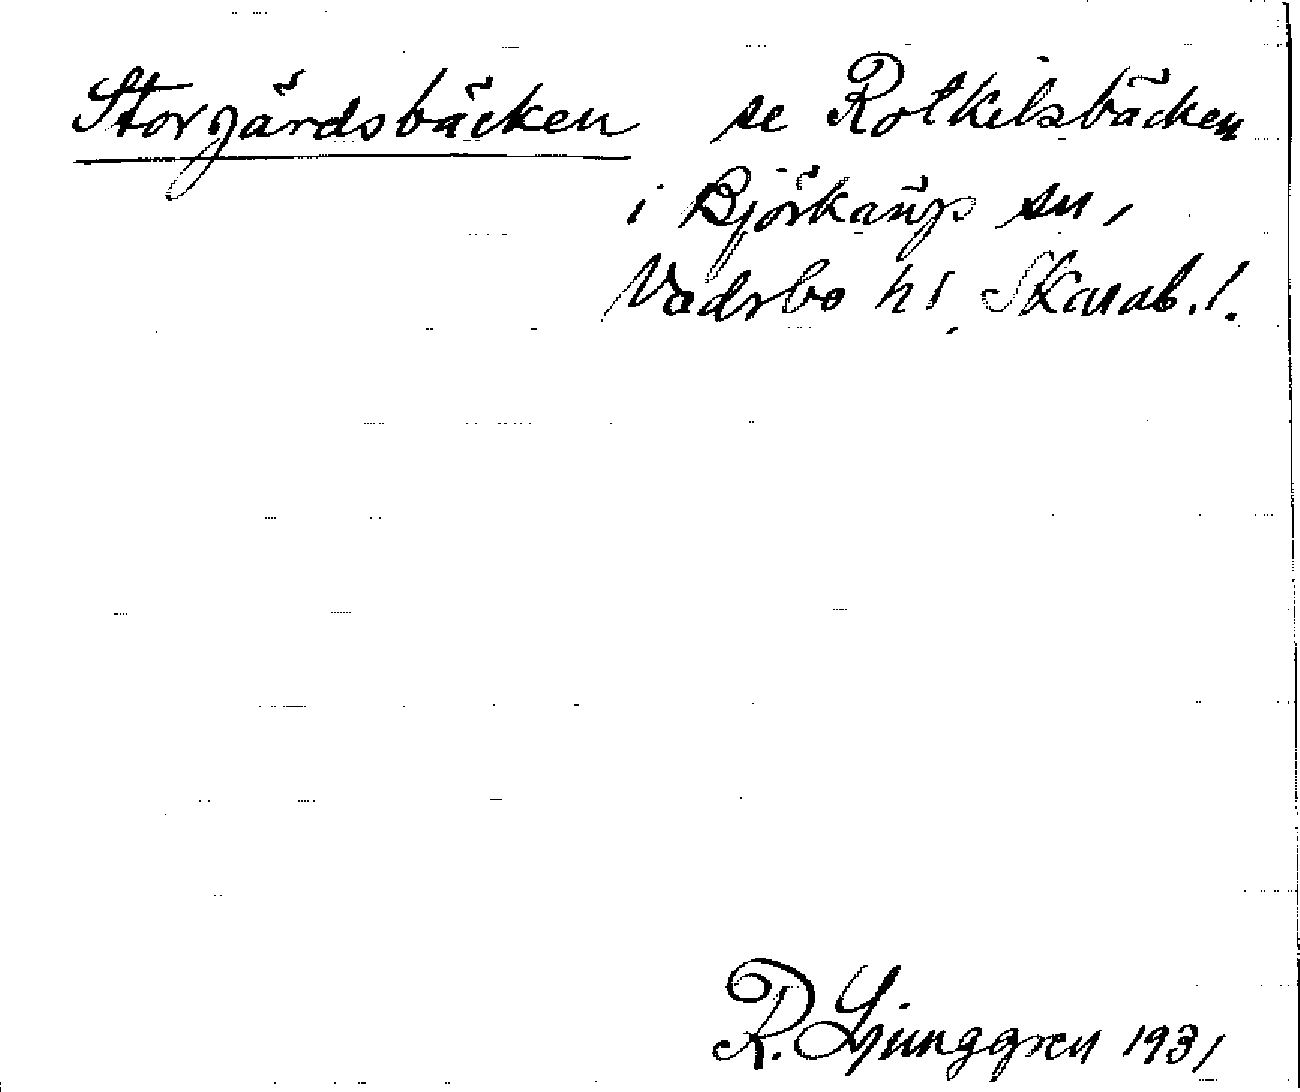 Storgårdsbäcken se Rotkilsbäcken
i Björkäng sn,
Vadsbo hd, Skarab. l.
R. Ljunggren 1931